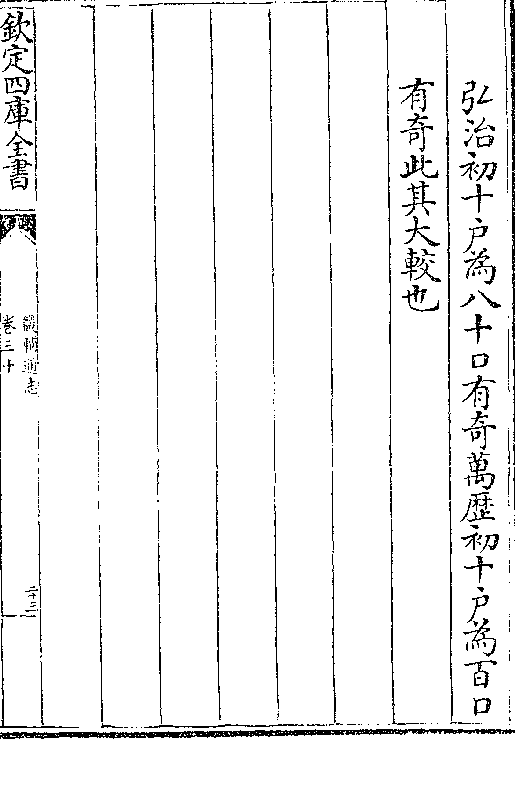 弘治初十户為八十口有奇萬歴初十户為百口
有奇此其大較也
欽定四庫全書
畿輔通志
卷三十
二十三